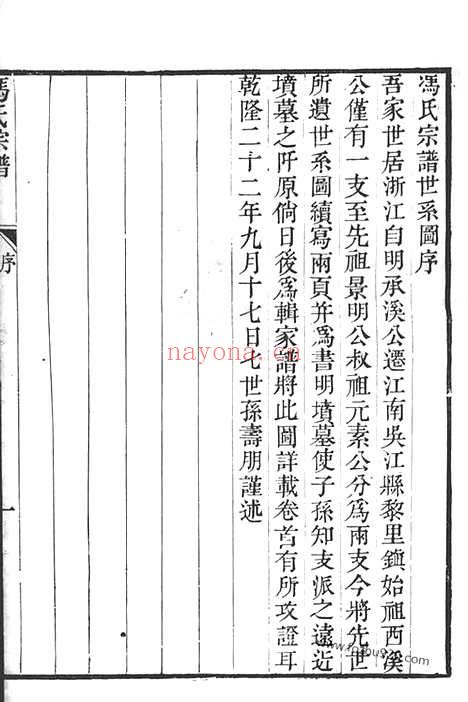 馮氏宗譜世系圖序
吾家世居浙江自明承溪公遷江南吳江縣黎里鎭始祖西溪
公僅有一支至先祖景明公叔祖元素公分爲兩支今將先世
所遺世系圖續寫兩頁并爲書明墳墓使子孫知支派之遠近
墳墓之阡原倘日後爲輯家譜將此圖詳載卷首有所攷證耳
乾隆二十二年九月十七日七世孫壽朋謹述
馮氏宗譜
序
一
nayona.cn